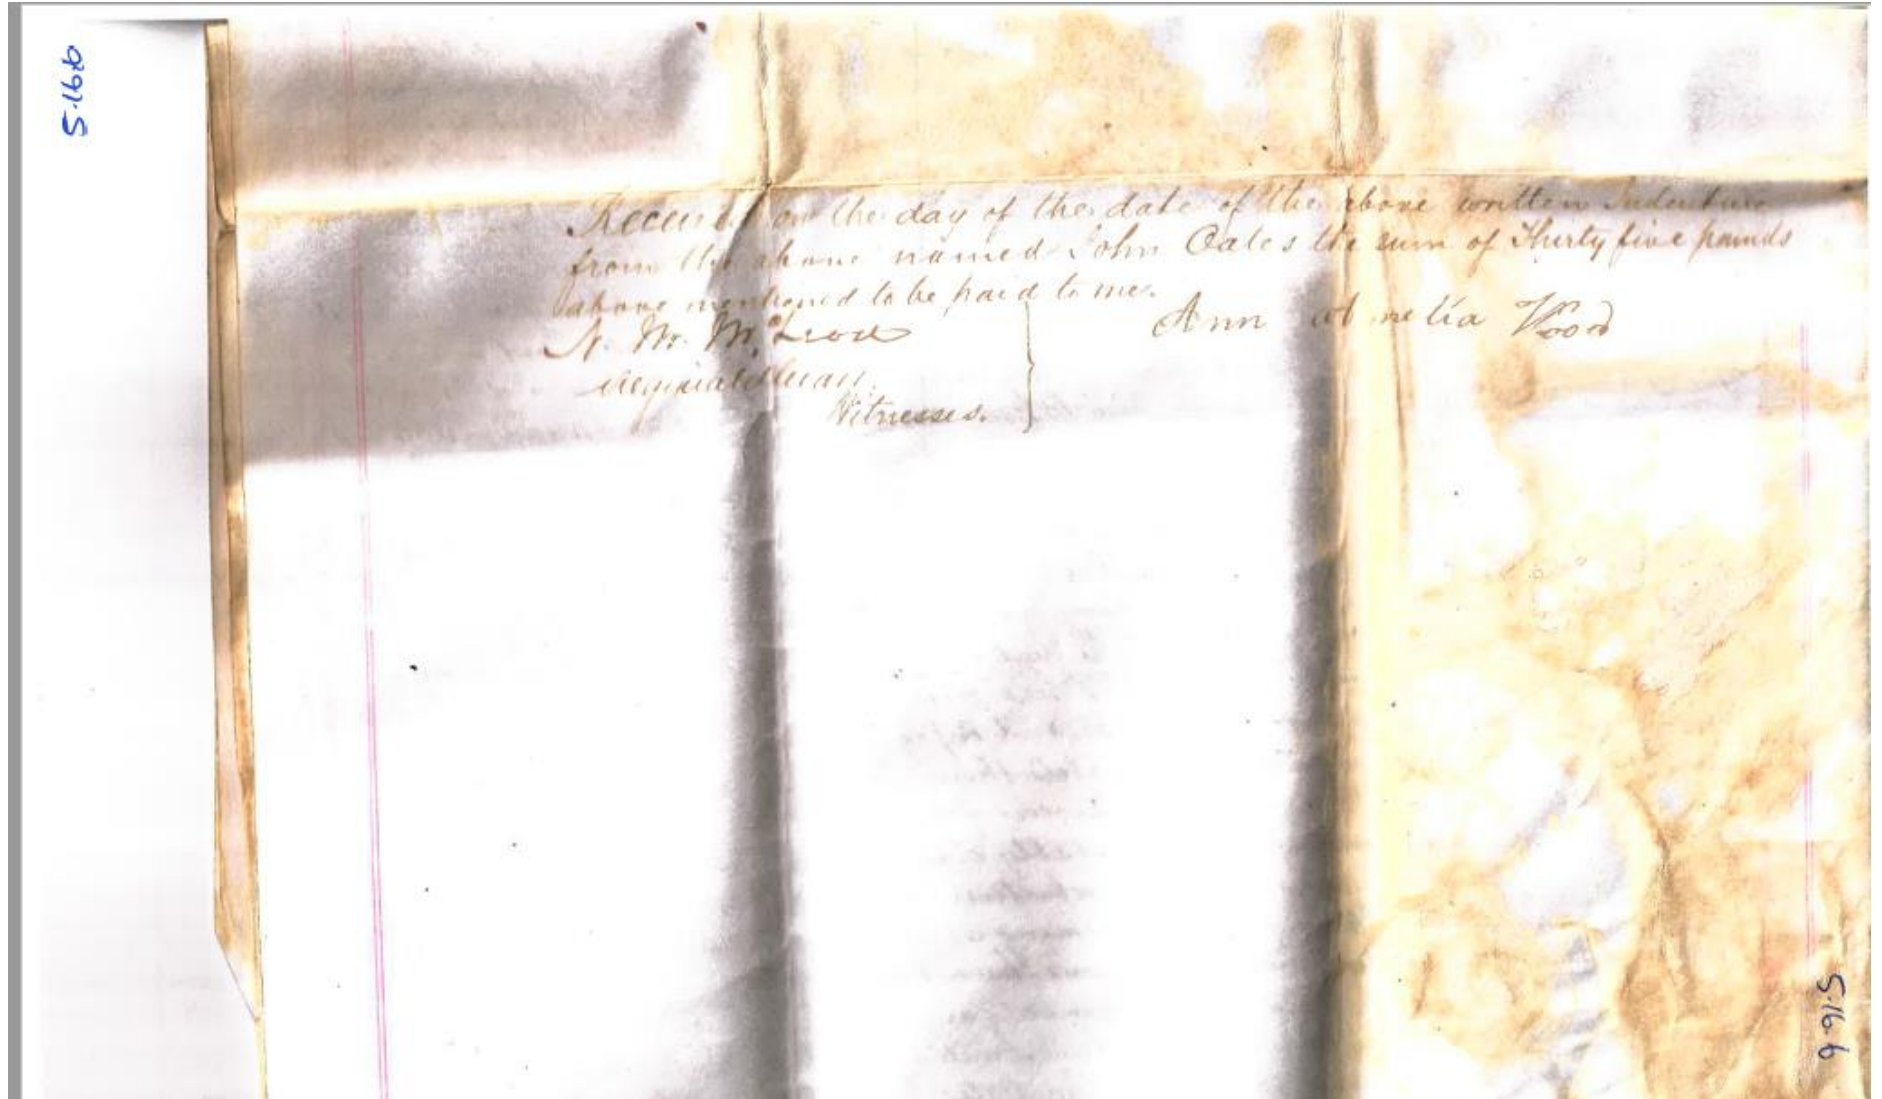 S.16.b
Received on the day of the date of the above written Indenture
from the above named John Oates the sum of Thirty five pounds
above mentioned to be paid to me.
N. M. McLeod
Ann Amelia Wood
Reginald
Witnesses.
S.16.b